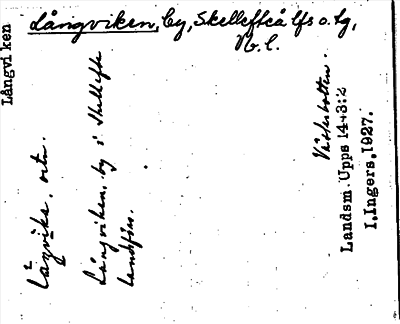 Långviken
Långviken, by, Skellefteå lfs o. tg,
N.l.
Långvika, ortn.
Långviken, by i Skellefte
landsförs.
Västerbotten.
Landsm. Upps 14+3:2
I. Ingers, 1927.